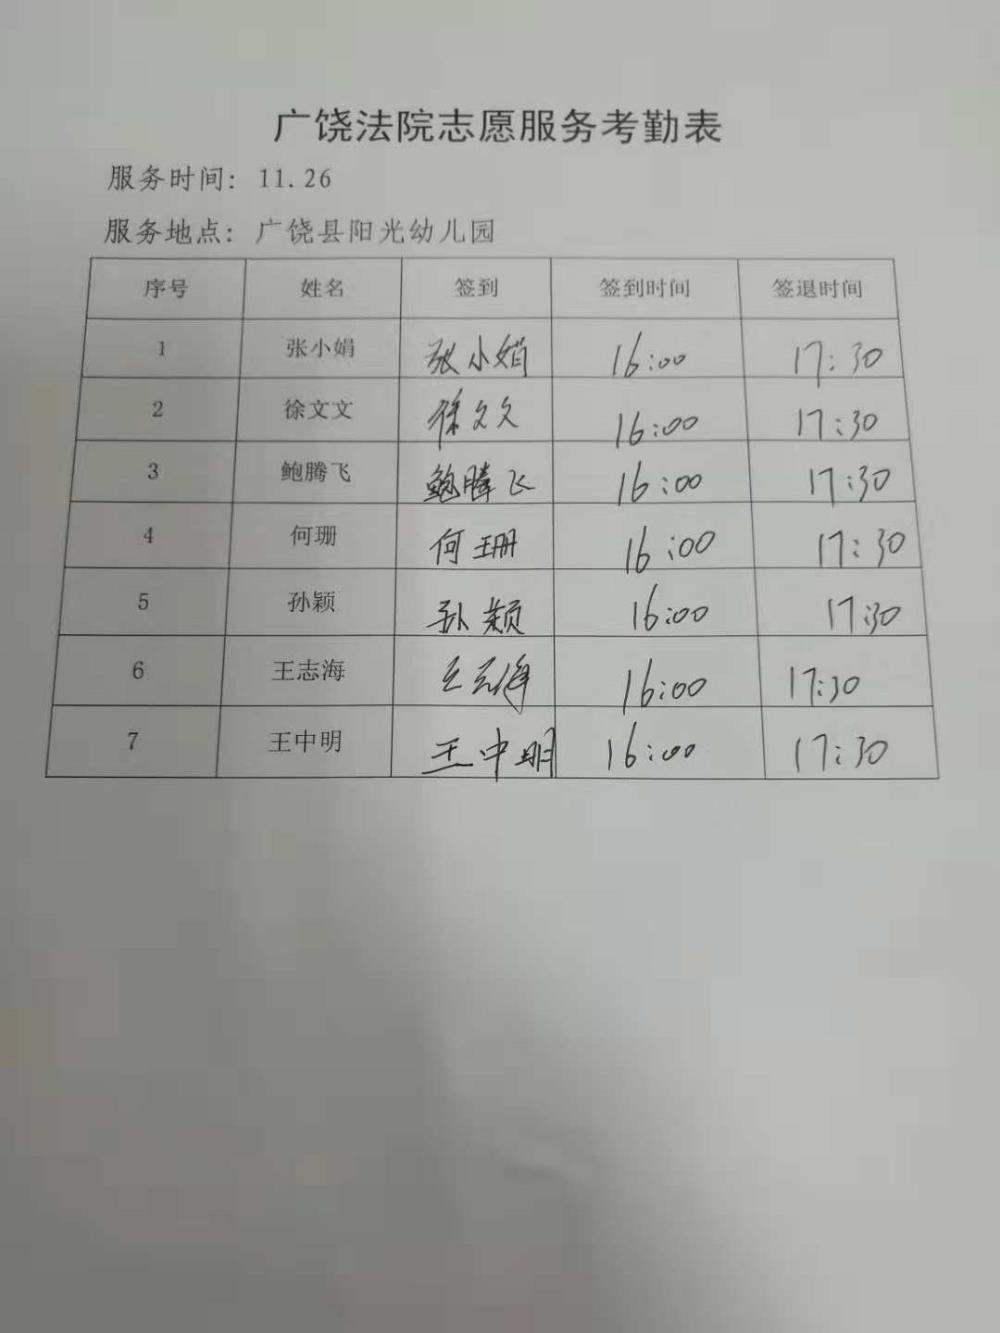 广饶法院志愿服务考勤表
服务时间：11.26
服务地点：广饶县阳光幼儿园
序号 姓名 签到 签到时间 签退时间
1 张小娟 张小娟 16:00 17:30
2 徐文文 徐文文 16:00 17:30
3 鲍腾飞 鲍腾飞 16:00 17:30
4 何珊 何珊 16:00 17:30
5 孙颖 孙颖 16:00 17:30
6 王志海 王志海 16:00 17:30
7 王中明 王中明 16:00 17:30